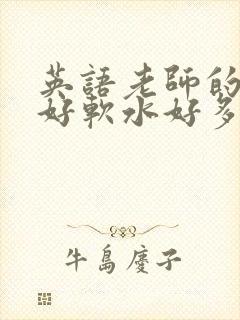 英語老師的
好軟水好多
牛島慶子